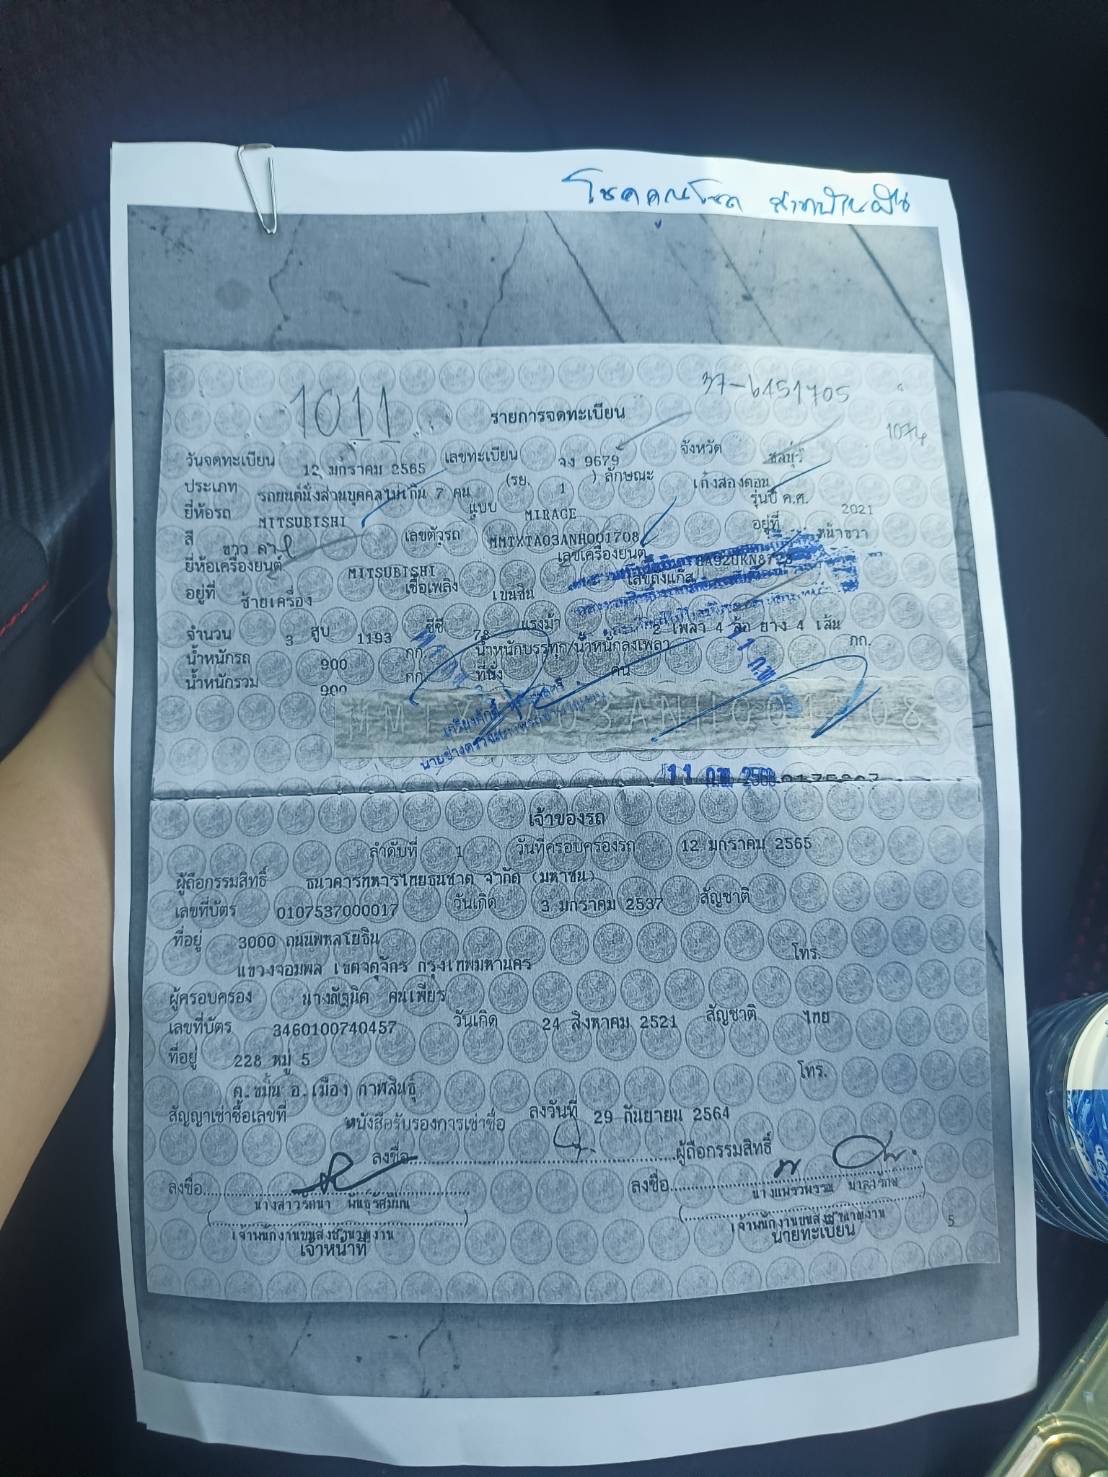 โชคคูณโชค
1011
37-6451705
รายการจดทะเบียน
วันจดทะเบียน 12 มกราคม 2565 เลขทะเบียน จง 9679 จังหวัด ชลบุรี
ประเภท รถยนต์นั่งส่วนบุคคลไม่เกิน 7 คน (รย. 1 ) ลักษณะ เก๋งสองตอน
ยี่ห้อรถ MITSUBISHI แบบ MIRAGE รุ่นปี ค.ศ. 2021
สี ขาว ดำ เลขตัวรถ MMTXTA03ANH001708 อยู่ที่ หน้าขวา
ยี่ห้อเครื่องยนต์ MITSUBISHI เลขเครื่องยนต์
อยู่ที่ ซ้ายเครื่อง เชื้อเพลิง เบนซิน เลขถังแก๊ส
จำนวน 3 สูบ 1193 ซีซี 78 แรงม้า 2 เพลา 4 ล้อ ยาง 4 เส้น
น้ำหนักรถ 900 กก. น้ำหนักบรรทุก/น้ำหนักลงเพลา กก.
น้ำหนักรวม 900 กก. ที่นั่ง คน
11 ก.พ.
เจ้าของรถ
ลำดับที่ 1 วันที่ครอบครองรถ 12 มกราคม 2565
ผู้ถือกรรมสิทธิ์ ธนาคารทหารไทยธนชาต จำกัด (มหาชน)
เลขที่บัตร 0107537000017 วันเกิด 3 มกราคม 2537 สัญชาติ
ที่อยู่ 3000 ถนนพหลโยธิน โทร.
แขวงจอมพล เขตจตุจักร กรุงเทพมหานคร
ผู้ครอบครอง นางณัฐนิต คนเพียร
เลขที่บัตร 3460100740457 วันเกิด 24 สิงหาคม 2521 สัญชาติ ไทย
ที่อยู่ 228 หมู่ 5 โทร.
ต.ขมิ้น อ.เมือง กาฬสินธุ์
สัญญาเช่าซื้อเลขที่ หนังสือรับรองการเช่าซื้อ ลงวันที่ 29 กันยายน 2564
ลงชื่อ ผู้ถือกรรมสิทธิ์
ลงชื่อ ลงชื่อ
เจ้าพนักงานขนส่งชำนาญงาน เจ้าพนักงานขนส่งชำนาญงาน
เจ้าหน้าที่ นายทะเบียน
5